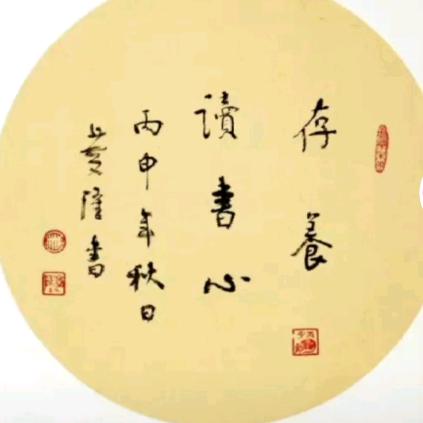 存養
讀書心
丙申年秋日
隆書